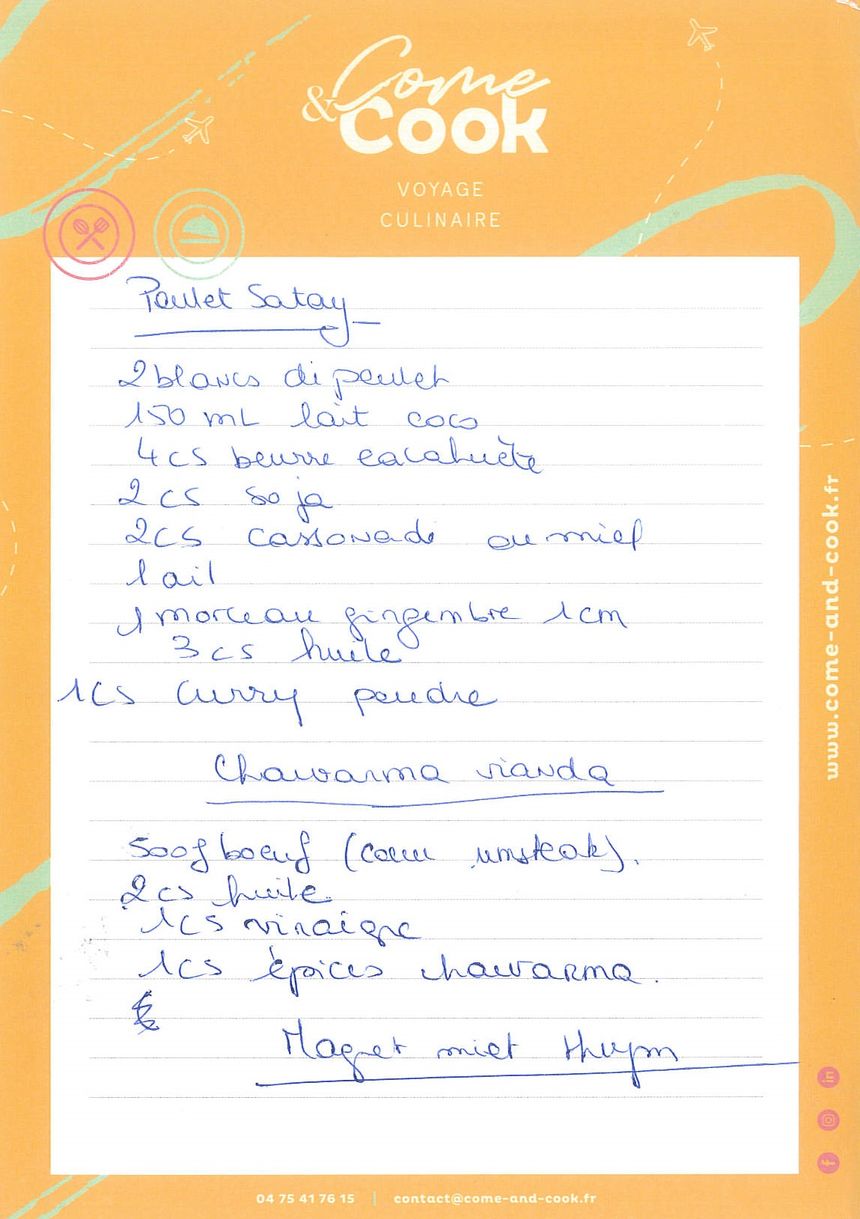 Come
& Cook
VOYAGE
CULINAIRE
Poulet Satay
2 blancs de poulet
150 mL lait coco
4 cs beurre cacahuète
2 cs soja
2 cs cassonade ou miel
1 ail
1 morceau gingembre 1 cm
3 cs huile
1 cs curry poudre
Chawarma viande
500g boeuf (coeur rumsteak).
2 cs huile
1 cs vinaigre
1 cs épices chawarma.
Magret miel thym
www.come-and-cook.fr
in
f
04 75 41 76 15 | contact@come-and-cook.fr